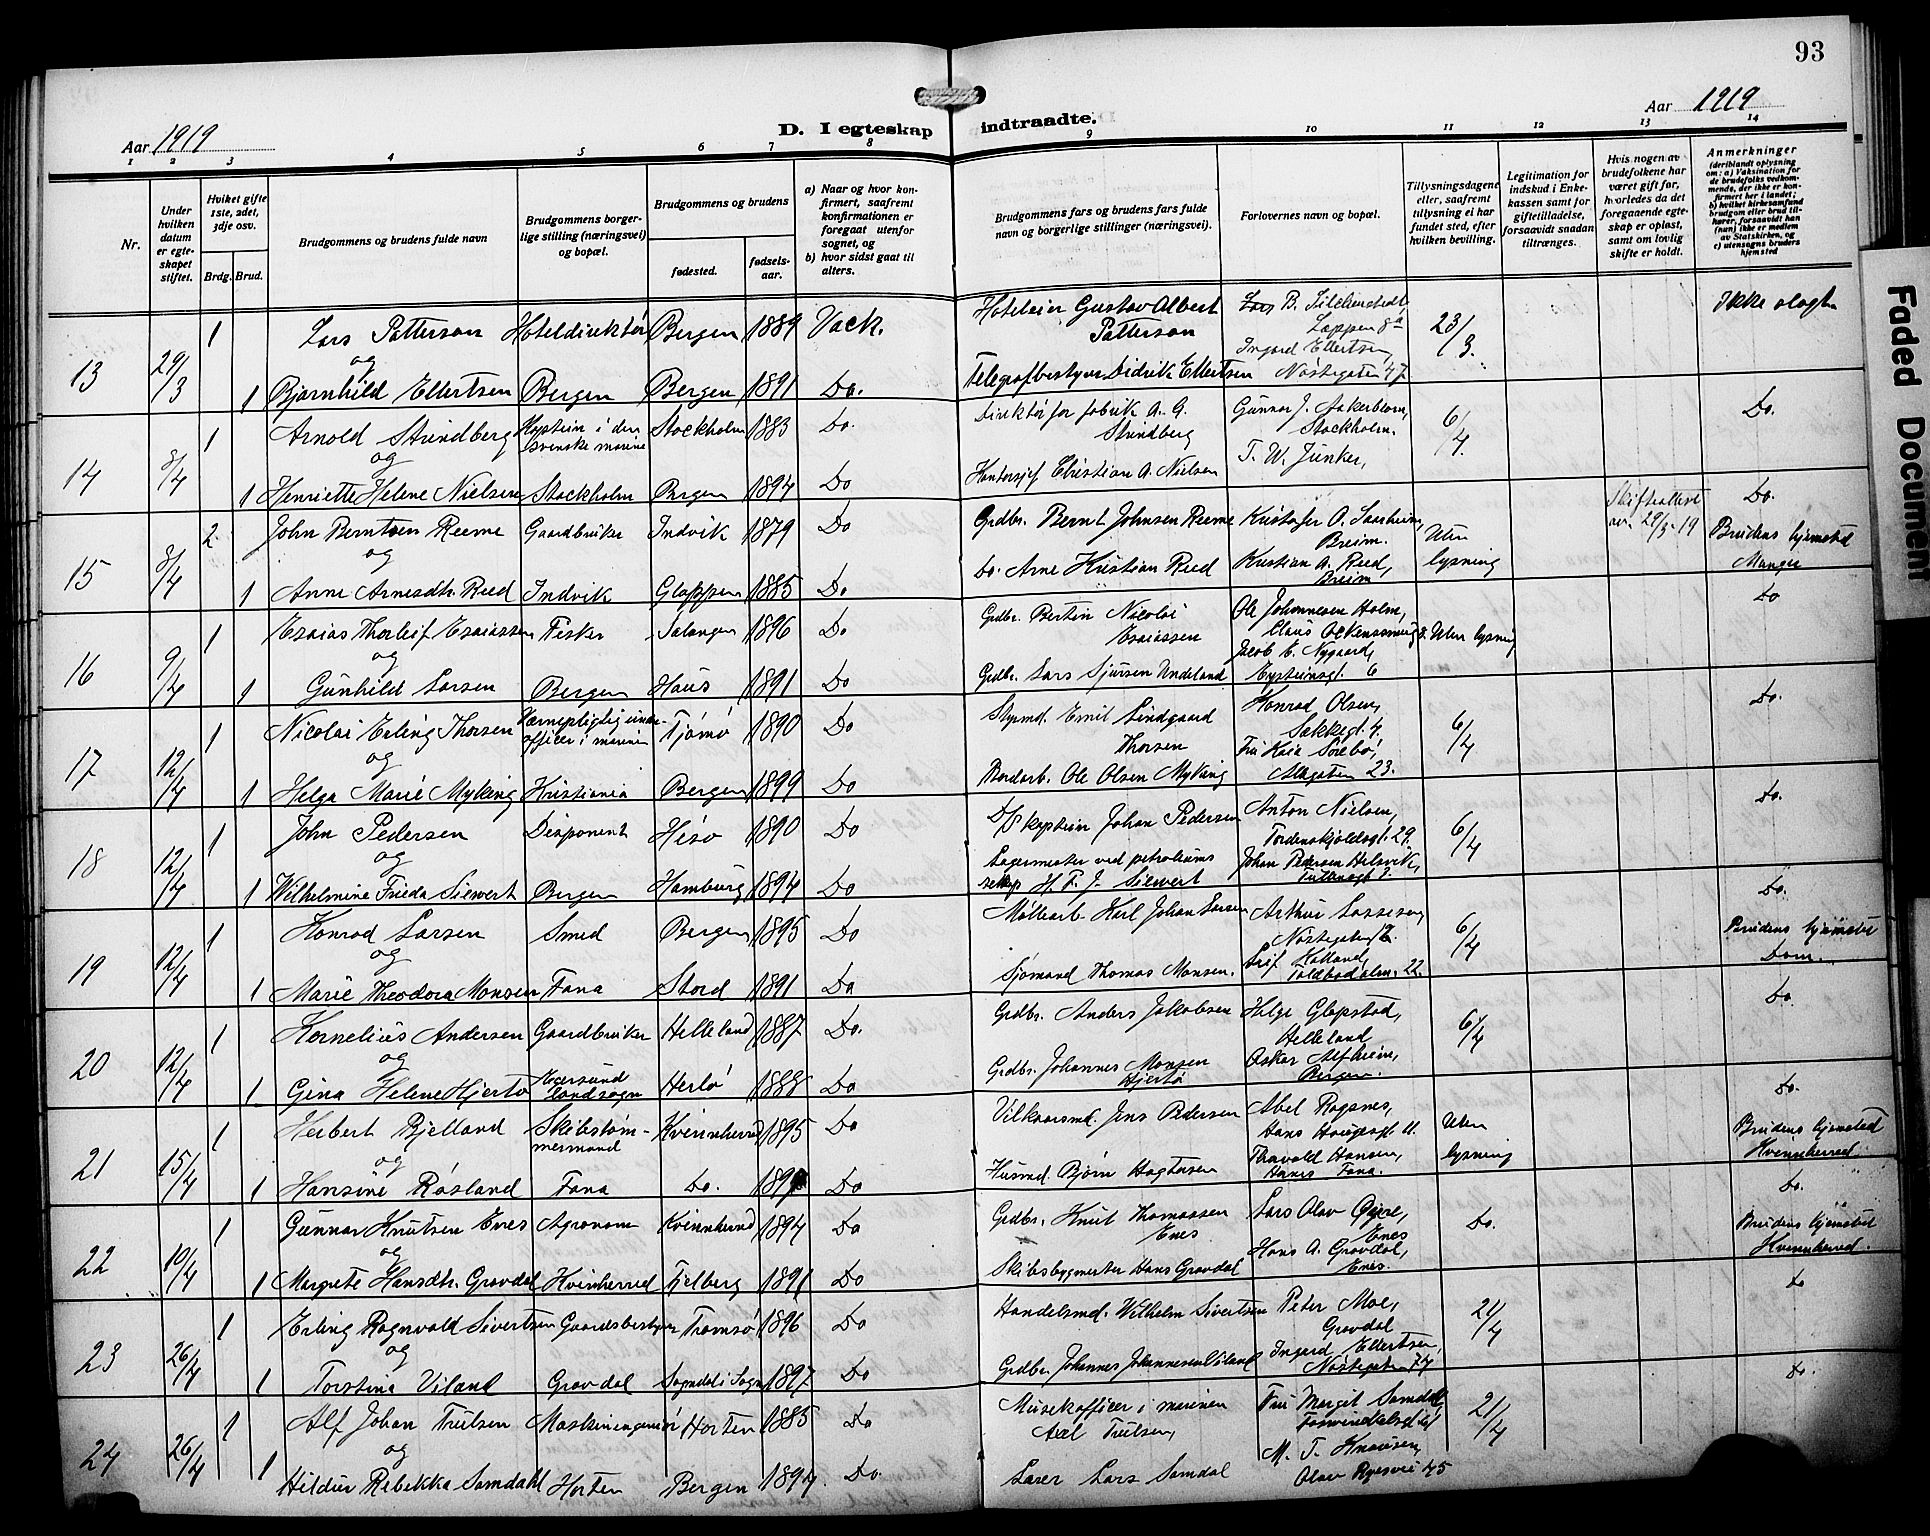 93
Aar 1919
D. I egteskap indtraadte.
Aar 1919
1 2 3 4 5 6 7 8 9 10 11 12 13 14
Nr.
Under hvilken datum er egteskapet stiftet.
Hvilket gifte 1ste, 2det, 3dje osv.
Brdg. Brud.
Brudgommens og brudens fulde navn
Brudgommens borgerlige stilling (næringsvei) og bopæl.
Brudgommens og brudens
fødested.
fødselsaar.
a) Naar og hvor konfirmert, saafremt konfirmationen er foregaat utenfor sognet, og
b) hvor sidst gaat til alters.
Brudgommens fars og brudens fars fulde navn og borgerlige stillinger (næringsvei).
Forlovernes navn og bopæl.
Tillysningsdagene eller, saafremt tillysning ei har fundet sted, efter hvilken bevilling.
Legitimation for indskud i Enkekassen samt for giftetilladelse, forsaavidt saadan tiltrænges.
Hvis nogen av brudefolkene har været gift før, hvorledes da det foregaaende egteskap er opløst, samt om lovlig skifte er holdt.
Anmerkninger
(deriblandt oplysning om: a) Vaksination for de brudefolks vedkommende, der ikke er konfirmert her i landet; b) hvilket kirkesamfund brudgom eller brud tilhører, forsaavidt han (hun) ikke er medlem av Statskirken, og c) utensogns bruders hjemsted
13 29/3 1 Lars Patterson Hoteldirektør Bergen 1889 Vack. Hoteleier Gustav Albert Patterson Lars B. 23/3. Ikke slegt
og
1 Bjarnhild Ellertsen Bergen Bergen 1891 Do. Telegrafbestyrer Didrik Ellertsen Ingard Ellertsen, Nøstegaten 47
14 8/4 1 Arnold Strindberg Kaptein i den svenske marine Stockholm 1883 Do. Direktør for fabrik A. G. Strindberg Gunnar J. Aakerblom, Stockholm. 6/4. Do.
og
1 Henriette Helene Nielsen Stockholm Bergen 1894 Do Kontorsjef Christian A. Nielsen T. W. Junker,
15 8/4 2. John Berntsen Reeme Gaardbruker Indvik 1879 Do Grdbr. Bernt Johnsen Reeme Kristofer O. Saarheim, Breim. Uten lysning Skifteattest 29/3-19 Do.
og
1 Anne Arnesdtr. Reed Indvik Gloppen 1885 Do Do. Arne Kristian Reed Kristian A. Reed, Breim Brudens hjemsted Manger
16 9/4 1 Esaias Thorleif Esaiassen Fisker Salangen 1896 Do Grdbr. Bertin Nicolai Esaiassen Ole Johannesen Holm, Claus Ockenssmug 8. Uten lysning Do
og
1 Gunhild Larsen Bergen Haus 1891 Do Grdbr. Lars Sjursen Undeland Jacob E. Nygaard, Eysteinsgt. 6
17 12/4 1 Nicolai Erling Thorsen Værnepligtig underofficer i marinen Tjømø 1890 Do Styrmd. Emil Lindgaard Thorsen Konrad Olsen, Sækkegt. 4. 6/4 Do.
og
1 Helga Marie Myking Kristiania Bergen 1899 Do Bordarb. Ole Olsen Myking Fru Kaia Sørebø, Allégaten 23.
18 12/4 1 John Pedersen Disponent Hisø 1890 Do D/S kaptein Johan Pedersen Anton Nielsen, Tordenskjoldsgt. 29. 6/4 Do.
og
1 Wilhelmine Frieda Siewert Bergen Hamburg 1894 Do Lagermester ved petroliums selskap H. F. J. Siewert Johan Petersen Helsvik,
19 12/4 1 Konrad Larsen Smed Bergen 1895 Do Møllearb. Karl Johan Larsen Arthur Lassesen, Nøstegaten 12. 6/4 Do.
og
1 Marie Theodora Monsen Fana Stord 1891 Do Sjømand Thomas Monsen. Leif Hatland, Toldbodalm. 22 Brudens hjemsted Dom.
20 12/4 1 Kornelius Andersen Gaardbruker Helleland 1887 Do. Grdbr. Anders Jakobsen Helge Glapstad, Helleland 6/4 Do.
og
1 Gina Helene Hjertø Egersund landsogn Herlø 1888 Do Grdbr. Johannes Monsen Hjertø Oskar Alfheim, Bergen.
21 15/4 1 Herbert Bjelland Skibstømmermand Kvinnherred 1895 Do Vilkaarsmd. Jens Pedersen Abel Rogsnes, Hans Haugesgt. 11. Uten lysning Do.
og
1 Hansine Røsland Fana Do. Do Husmd. Bjørn Hagtosen Thorvald Hansen, Hanes Fana. Brudens hjemsted Kvinnherred
22 19/4 1 Gunnar Knutsen Enes Agronom Kvinnherred 1894 Do Grdbr. Knut Thomassen Enes Lars Olav Øyre, Enes Do. Do.
og
1 Margrete Hansdtr. Gravdal Kvinherred Fjelberg 1891 Do Skibsbygmester Hans Gravdal Hans A. Gravdal, Enes. Brudens hjemsted Kvinnherred.
23 26/4 1 Erling Ragnvald Sivertsen Gaardsbestyrer Tromsø 1896 Do Handelsmd. Wilhelm Sivertsen Peter Moe, Gravdal 21/4 Do
og
1 Torstina Viland Gravdal Sogndal i Sogn 1897 Do Grdbr. Johannes Johannesen Viland Ingard Ellertsen, Nøstegaten 74
24 26/4 1 Alf Johan Trulsen Maskiningeniør Horten 1885 Do Musikofficer i marinen Axel Trulsen, Fru Margit Samdal, 21/4 Do.
og
1 Hildur Rebekka Samdahl Horten Bergen 1894. Do. Laser Lars Samdal M. T. Knausen, Olav Ryesvei 45
Faded Document